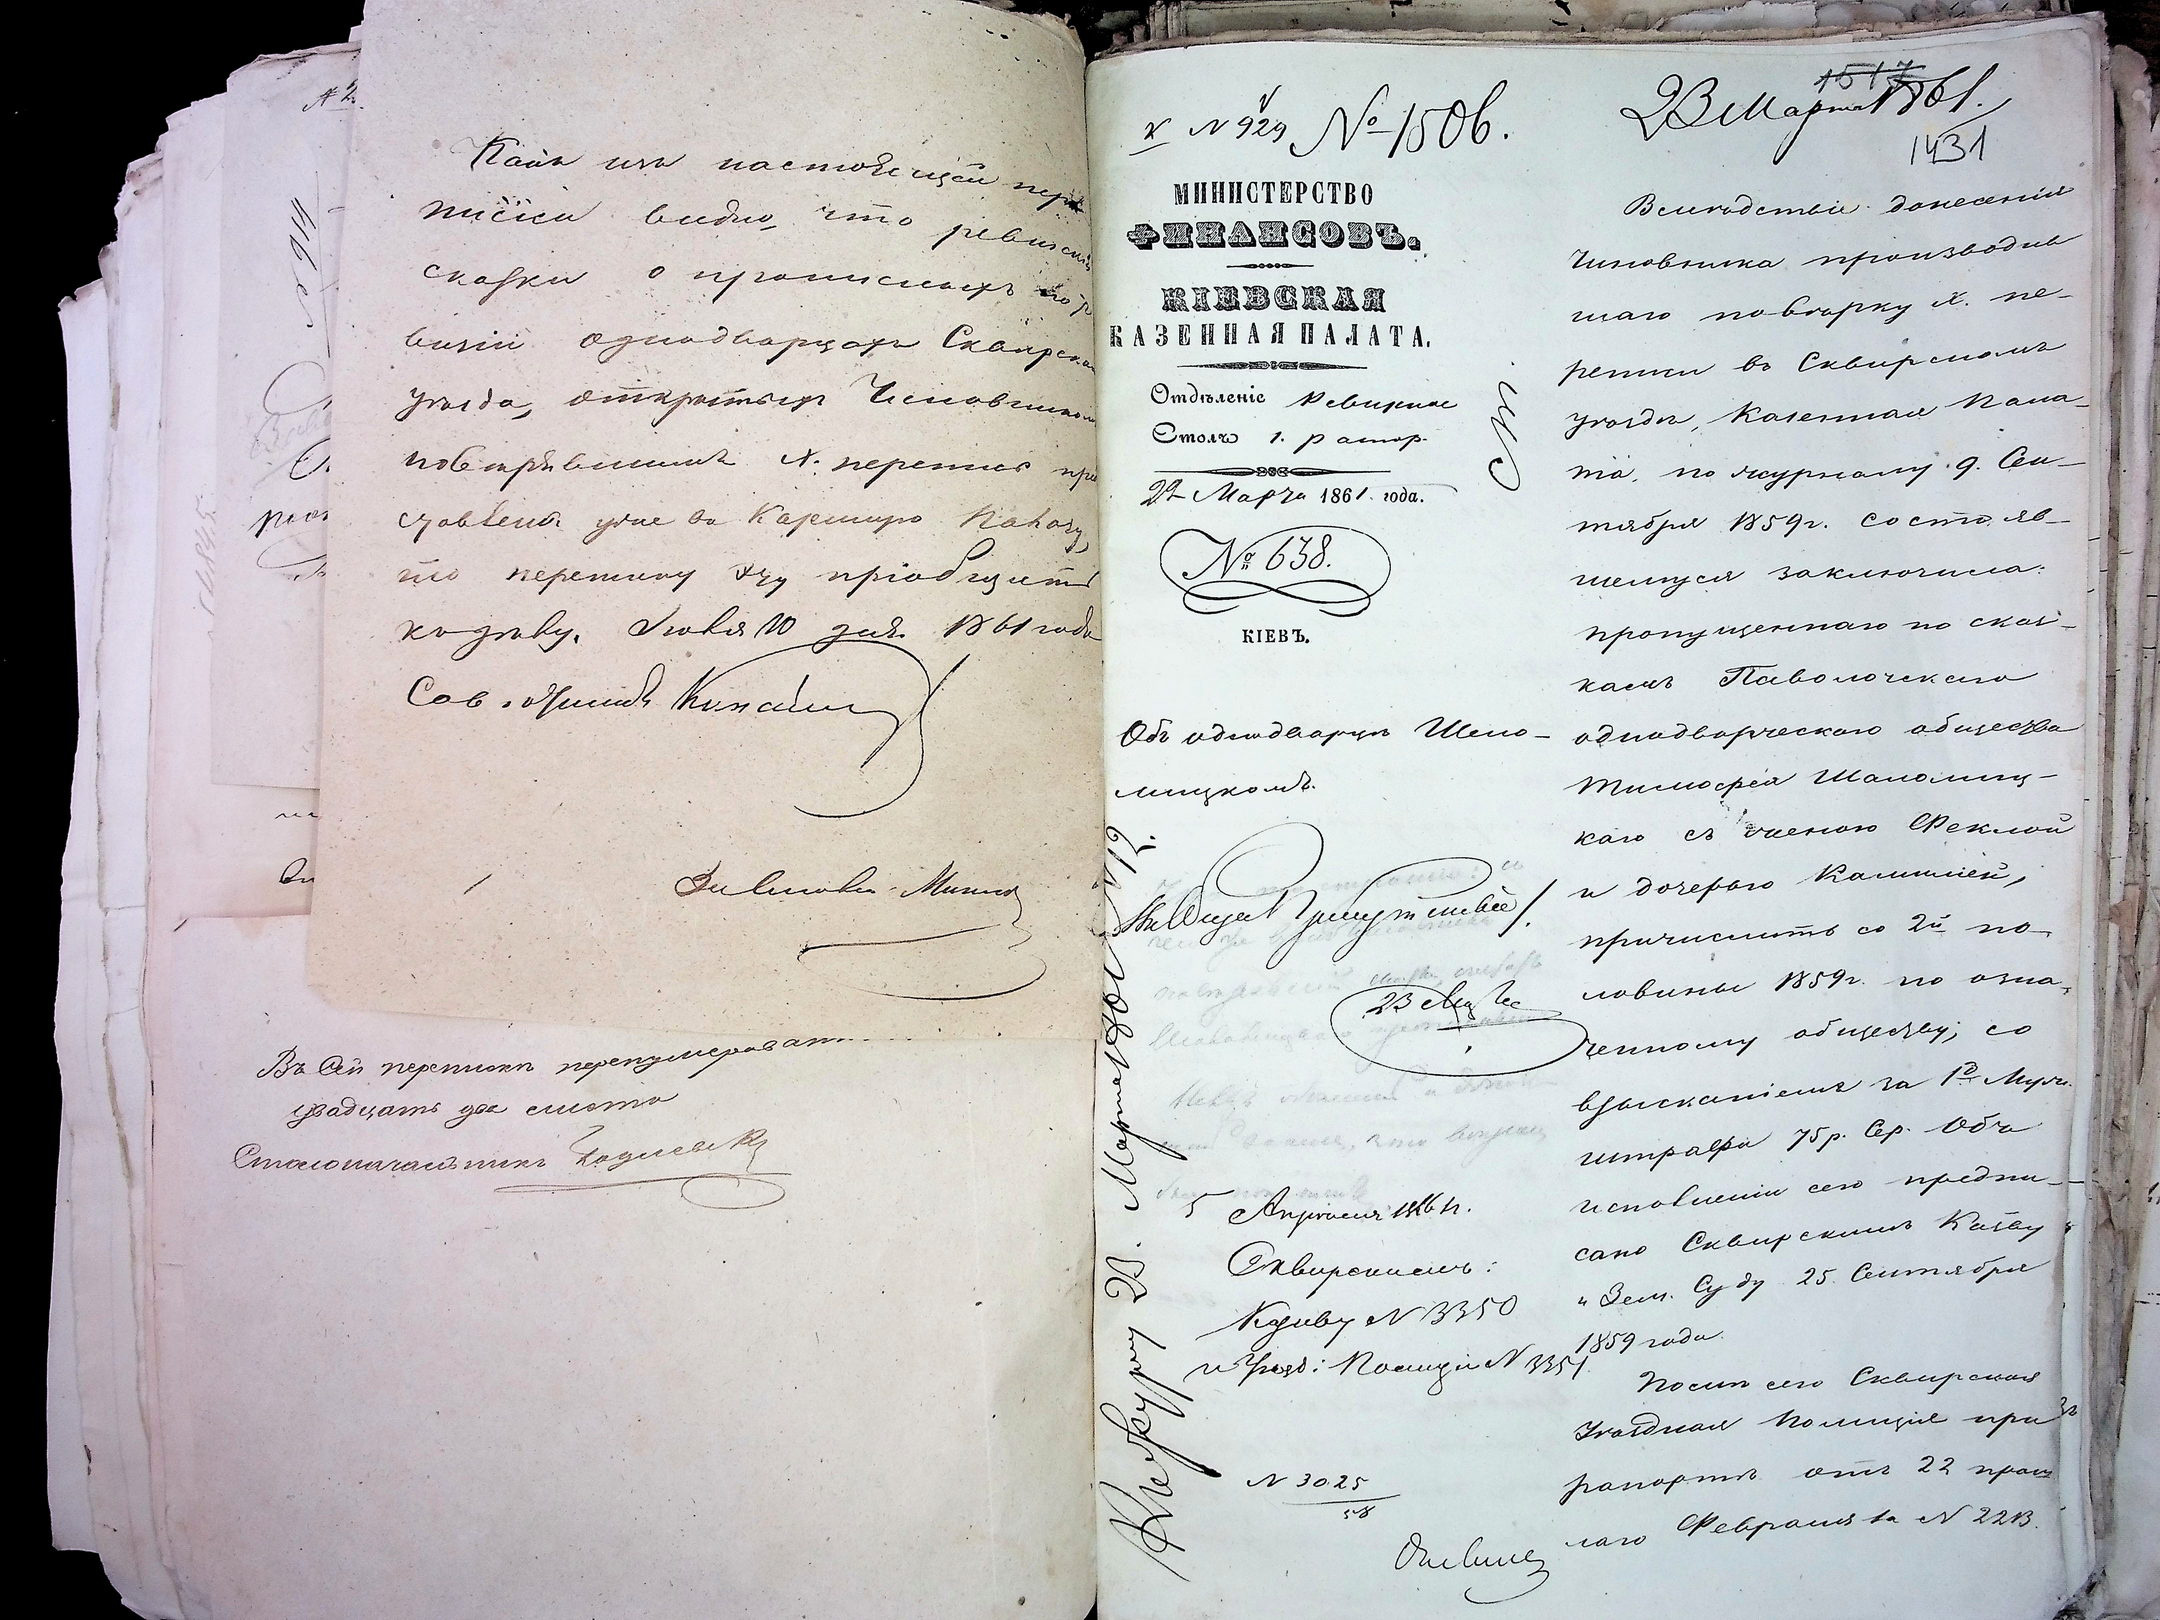 Какъ изъ настоящей пере
писки видно, что ревизскія
сказки о прописныхъ по ре
визіи однодворцахъ Сквирскаго
уезда, открытыхъ Чиновникомъ
повѣрявшимъ X. перепись пред
ставлена уже въ Казенную Палату,
то переписку эту пріобщить
къ дѣлу. Іюня 10 дня 1861 года
Въ сей перепискѣ перенумеровано
двадцать два листа
Столоначальникъ
К N 929 № 1506.
23 Марта 1861.
1517
1431
МИНИСТЕРСТВО
ФИНАНСОВЪ.
КІЕВСКАЯ
КАЗЕННАЯ ПАЛАТА.
Отдѣленіе Ревизское
Столъ 1.
22 Марта 1861 года.
№ 638.
КІЕВЪ.
Объ однодворцѣ Шено-
лицкомъ.
23 Марта
5 Апрѣля 1861 г.
Сквирскимъ:
Кзнву N 3350
и Уезд: Полиціи N 3351
N 3025
Къ журналу 23. Марта 1861 N 12.
Вслѣдствіе донесенія
Чиновника производив
шаго повѣрку X. пе-
реписи въ Сквирскомъ
уездѣ, Казенная Пала-
та, по журналу 9. Сен-
тября 1859 г. состояв-
шемуся заключила:
пропущеннаго по сказ-
камъ Паволочскаго
однодворческаго общества
Тимофея Шанолиц-
каго съ женою Феклой
и дочерью
причислить со 2й по-
ловины 1859 г. по озна-
ченному обществу, со
взысканіемъ за 1 д. Муж.
штрафа 75 р. Сер. Объ
исполненіи сего предпи-
сано Сквирскимъ Казву
и Зем. Суду 25 Сентября
1859 года.
Послѣ сего Сквирская
Уездная Полиція при
рапортѣ отъ 22 прош
лаго Февраля за N 2213.